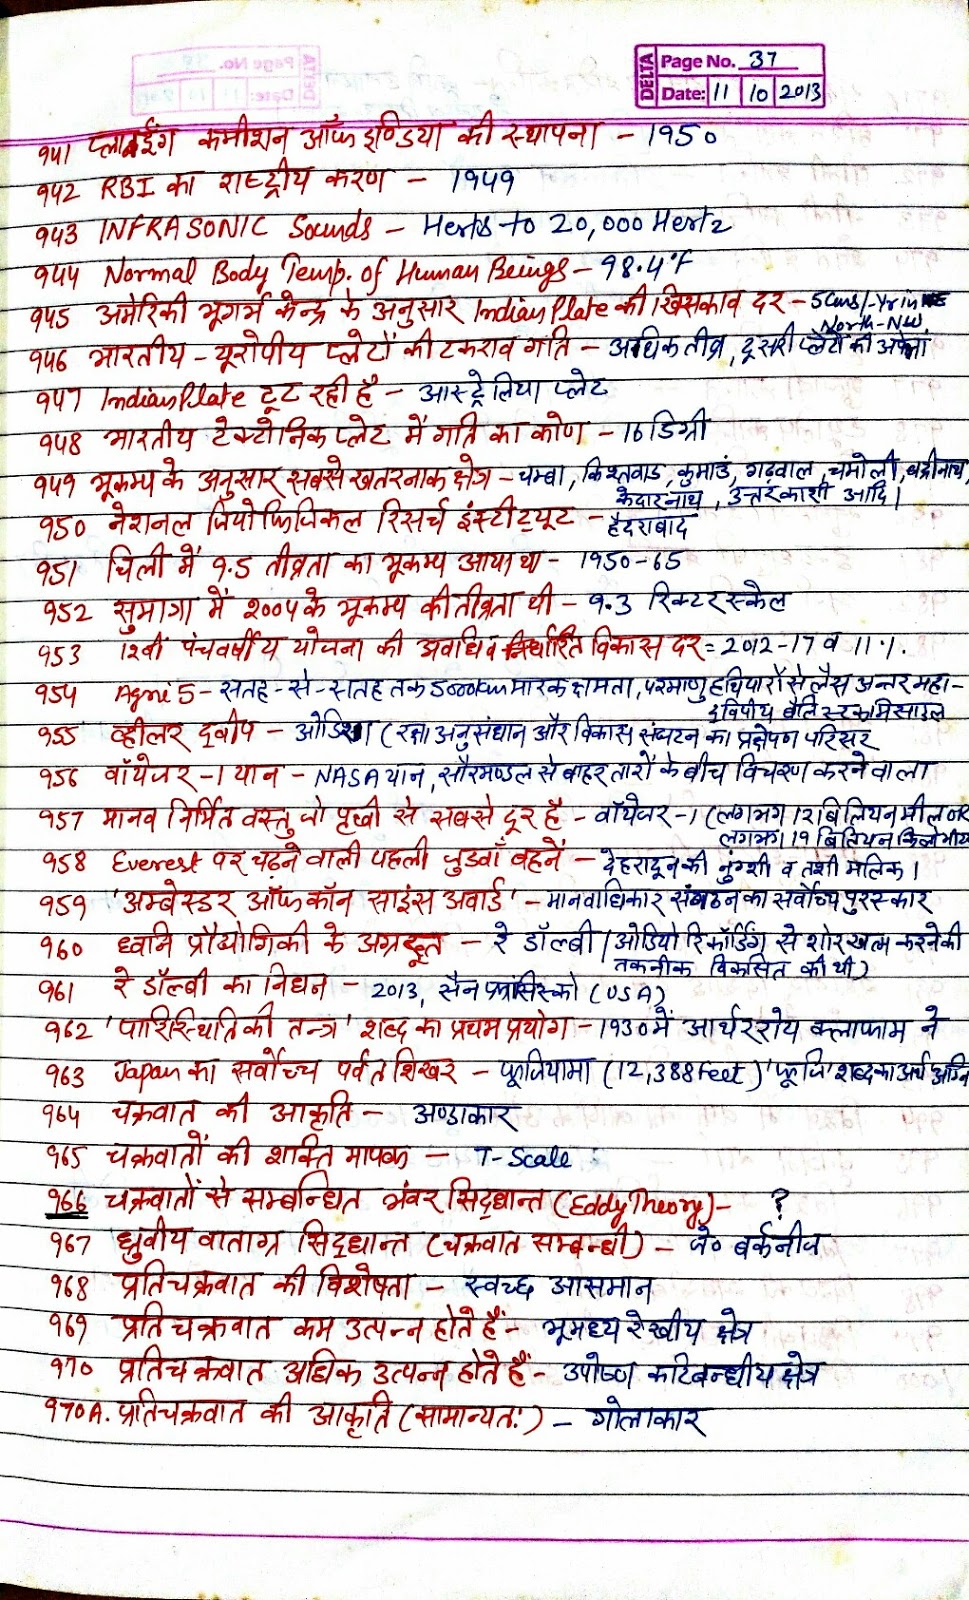 DELTA
Page No. 37
Date: 11 10 2013
941 प्लानईंग कमीशन ऑफ इण्डिया की स्थापना – 1950
942 RBI का राष्ट्रीय करण – 1949
943 INFRASONIC Sounds – Herts to 20,000 Hertz
944 Normal Body Temp. of Human Beings – 98.4°F
945 अमेरिकी भूगर्भ केन्द्र के अनुसार Indian Plate की खिसकाव दर – 5 Cms/-Yr in
North-NW
946 भारतीय – यूरोपीय प्लेटों की टकराव गति – अधिक तीव्र, दूसरी प्लेटों की अपेक्षा
947 Indian Plate टूट रही है – आस्ट्रेलिया प्लेट
948 भारतीय टेक्टोनिक प्लेट में गति का कोण – 16 डिग्री
949 भूकम्प के अनुसार सबसे खतरनाक क्षेत्र – चम्बा, किश्तवाड, कुमाऊं, गढ़वाल, चमोली, बद्रीनाथ,
केदारनाथ, उत्तरकाशी आदि।
950 नेशनल जियोफिजिकल रिसर्च इंस्टीट्यूट – हैदराबाद
951 चिली में 9.5 तीव्रता का भूकम्प आया था – 1950-65
952 सुमात्रा में 2004 के भूकम्प की तीव्रता थी – 9.3 रिक्टर स्केल
953 12वीं पंचवर्षीय योजना की अवधि व निर्धारित विकास दर = 2012-17 व 11%.
954 Agni 5 – सतह-से-सतह तक 5000km मारक क्षमता, परमाणु हथियारों से लैस अन्तर महा-
द्विपीय बैलिस्टिक मिसाइल
955 व्हीलर द्वीप – ओडिशा (रक्षा अनुसंधान और विकास संघटन का प्रक्षेपण परिसर
956 वॉयेजर-1 यान – NASA यान, सौरमण्डल से बाहर तारों के बीच विचरण करने वाला
957 मानव निर्मित वस्तु जो पृथ्वी से सबसे दूर है – वॉयेजर-1 (लगभग 12 बिलियन मील OR
लगभग 19 बिलियन किलोमीटर
958 Everest पर चढ़ने वाली पहली जुडवाँ बहनें – देहरादून की नुंग्शी व तशी मलिक।
959 'अम्बेस्डर ऑफ कॉन साइंस अवार्ड' – मानवाधिकार संघठन का सर्वोच्च पुरस्कार
960 ध्वनि प्रौद्योगिकी के अग्रदूत – रे डॉल्बी (ओडियो रिकॉर्डिंग से शोर खत्म करने की
तकनीक विकसित की थी)
961 रे डॉल्बी का निधन – 2013, सैन फ्रांसिस्को (USA)
962 'पारिस्थितिकी तन्त्र' शब्द का प्रथम प्रयोग – 1930 में आर्थर रोय क्लाफाम ने
963 Japan का सर्वोच्च पर्वत शिखर – फूजियामा (12,388 Feet) 'फूजि' शब्द का अर्थ अग्नि
964 चक्रवात की आकृति – अण्डाकार
965 चक्रवातों की शक्ति मापक – T-Scale
966 चक्रवातों से सम्बन्धित भंवर सिद्धान्त (Eddy Theory) – ?
967 ध्रुवीय वाताग्र सिद्धान्त (चक्रवात सम्बन्धी) – जे० बर्कनीज
968 प्रतिचक्रवात की विशेषता – स्वच्छ आसमान
969 प्रतिचक्रवात कम उत्पन्न होते हैं – भूमध्य रेखीय क्षेत्र
970 प्रतिचक्रवात अधिक उत्पन्न होते हैं – उपोष्ण कटिबन्धीय क्षेत्र
970A. प्रतिचक्रवात की आकृति (सामान्यतः) – गोलाकार